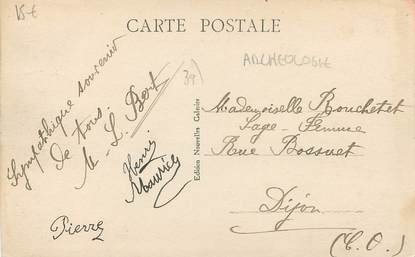 15€
CARTE POSTALE
ARCHEOLOGIE
39
Sympathique souvenir
de tous.
M. L. Bort
Henri
Maurice
Pierre
Edition Nouvelles Galerie
Mademoiselle Bouchetet
Sage-Femme
Rue Bossuet
Dijon
(C. O.)